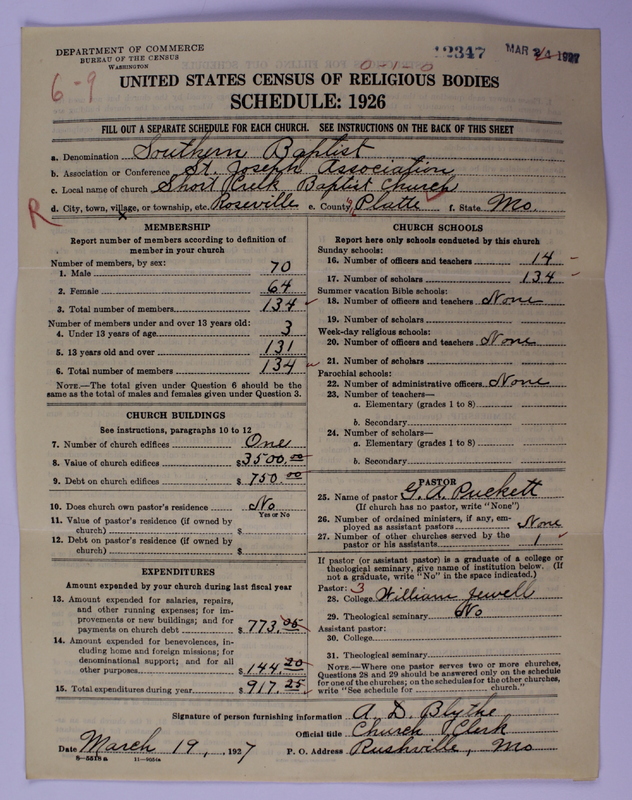 DEPARTMENT OF COMMERCE
BUREAU OF THE CENSUS
WASHINGTON
12347
MAR 24 1927
0-1-0
6-9
UNITED STATES CENSUS OF RELIGIOUS BODIES
SCHEDULE: 1926
FILL OUT A SEPARATE SCHEDULE FOR EACH CHURCH. SEE INSTRUCTIONS ON THE BACK OF THIS SHEET
a. Denomination Southern Baptist
b. Association or Conference St. Joseph Association
c. Local name of church Short Creek Baptist Church
R
d. City, town, village, or township, etc. Roseville e. County Platte f. State Mo.
MEMBERSHIP
Report number of members according to definition of
member in your church
Number of members, by sex:
1. Male 70
2. Female 64
3. Total number of members 134
Number of members under and over 13 years old:
4. Under 13 years of age 3
5. 13 years old and over 131
6. Total number of members 134
NOTE.—The total given under Question 6 should be the
same as the total of males and females given under Question 3.
CHURCH BUILDINGS
See instructions, paragraphs 10 to 12
7. Number of church edifices One
8. Value of church edifices $3500.00
9. Debt on church edifices $750.00
10. Does church own pastor's residence No
Yes or No
11. Value of pastor's residence (if owned by
church) $
12. Debt on pastor's residence (if owned by
church) $
EXPENDITURES
Amount expended by your church during last fiscal year
13. Amount expended for salaries, repairs,
and other running expenses; for im-
provements or new buildings; and for
payments on church debt $773.05
14. Amount expended for benevolences, in-
cluding home and foreign missions; for
denominational support; and for all
other purposes $144.20
15. Total expenditures during year $917.25
CHURCH SCHOOLS
Report here only schools conducted by this church
Sunday schools:
16. Number of officers and teachers 14
17. Number of scholars 134
Summer vacation Bible schools:
18. Number of officers and teachers None
19. Number of scholars
Week-day religious schools:
20. Number of officers and teachers None
21. Number of scholars
Parochial schools:
22. Number of administrative officers None
23. Number of teachers—
a. Elementary (grades 1 to 8)
b. Secondary
24. Number of scholars—
a. Elementary (grades 1 to 8)
b. Secondary
PASTOR
25. Name of pastor G. A. Puckett
(If church has no pastor, write "None")
26. Number of ordained ministers, if any, em-
ployed as assistant pastors None
27. Number of other churches served by the
pastor or his assistants 1
If pastor (or assistant pastor) is a graduate of a college or
theological seminary, give name of institution below. (If
not a graduate, write "No" in the space indicated.)
Pastor: 3
28. College William Jewell
29. Theological seminary No
Assistant pastor:
30. College
31. Theological seminary
NOTE.—Where one pastor serves two or more churches,
Questions 28 and 29 should be answered only on the schedule
for one of the churches; on the schedules for the other churches,
write "See schedule for church."
Signature of person furnishing information A. D. Blythe
Official title Church Clerk
Date March 19, 1927 P. O. Address Rushville, Mo
8-5518 a